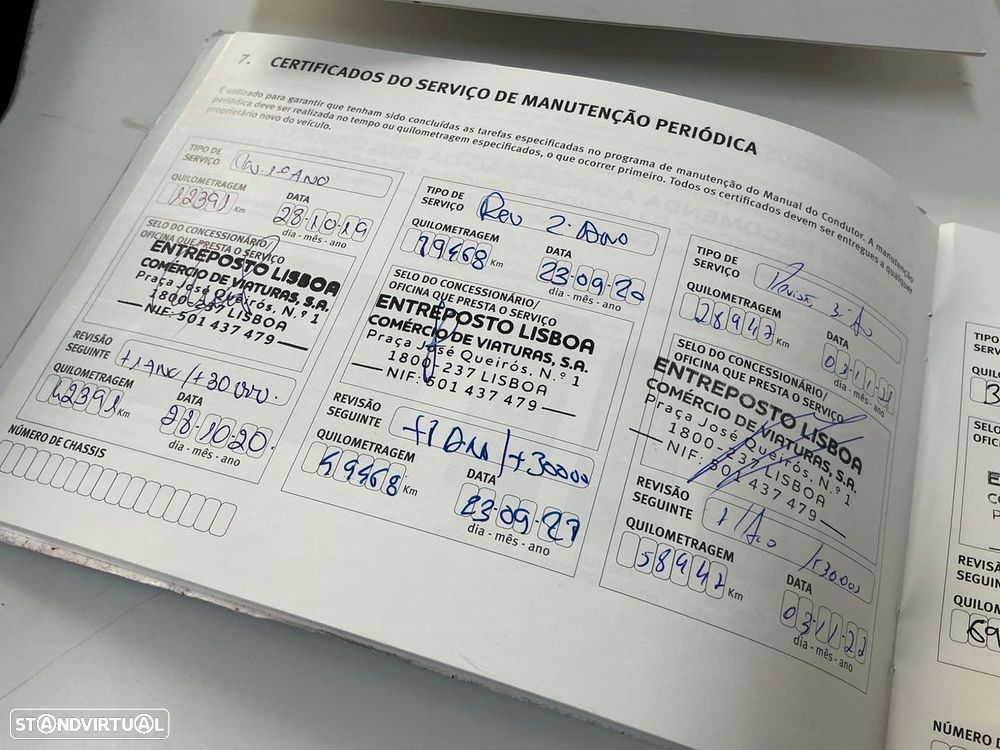 7. CERTIFICADOS DO SERVIÇO DE MANUTENÇÃO PERIÓDICA
É utilizado para garantir que tenham sido concluídas as tarefas especificadas no programa de manutenção do Manual do Condutor. A manutenção
periódica deve ser realizada no tempo ou quilometragem especificados, o que ocorrer primeiro. Todos os certificados devem ser entregues a qualquer
proprietário novo do veículo.
TIPO DE
SERVIÇO
1º ANO
QUILOMETRAGEM
12391 Km
DATA
28-10-19
dia - mês - ano
SELO DO CONCESSIONÁRIO/
OFICINA QUE PRESTA O SERVIÇO
ENTREPOSTO LISBOA
COMÉRCIO DE VIATURAS, S.A.
Praça José Queirós, N.º 1
1800-237 LISBOA
NIF: 501 437 479
REVISÃO
SEGUINTE
+1 ANO/+30000.
QUILOMETRAGEM
42391 Km
DATA
28-10-20.
dia - mês - ano
NÚMERO DE CHASSIS
TIPO DE
SERVIÇO
Rev 2. ANO
QUILOMETRAGEM
19468 Km
DATA
23-09-20
dia - mês - ano
SELO DO CONCESSIONÁRIO/
OFICINA QUE PRESTA O SERVIÇO
ENTREPOSTO LISBOA
COMÉRCIO DE VIATURAS, S.A.
Praça José Queirós, N.º 1
1800-237 LISBOA
NIF: 501 437 479
REVISÃO
SEGUINTE
+1 ANO/+30000
QUILOMETRAGEM
49468 Km
DATA
23-09-21
dia - mês - ano
TIPO DE
SERVIÇO
Revisão 3º Ano
QUILOMETRAGEM
28947 Km
DATA
03-11-21
dia - mês - ano
SELO DO CONCESSIONÁRIO/
OFICINA QUE PRESTA O SERVIÇO
ENTREPOSTO LISBOA
COMÉRCIO DE VIATURAS, S.A.
Praça José Queirós, N.º 1
1800-237 LISBOA
NIF: 501 437 479
REVISÃO
SEGUINTE
+1 Ano /+30000
QUILOMETRAGEM
58947 Km
DATA
03-11-22
dia - mês - ano
TIPO
SERV
QUILO
SELO
OFIC
REVISÃ
SEGUIN
QUILOM
NÚMERO
STANDVIRTUAL